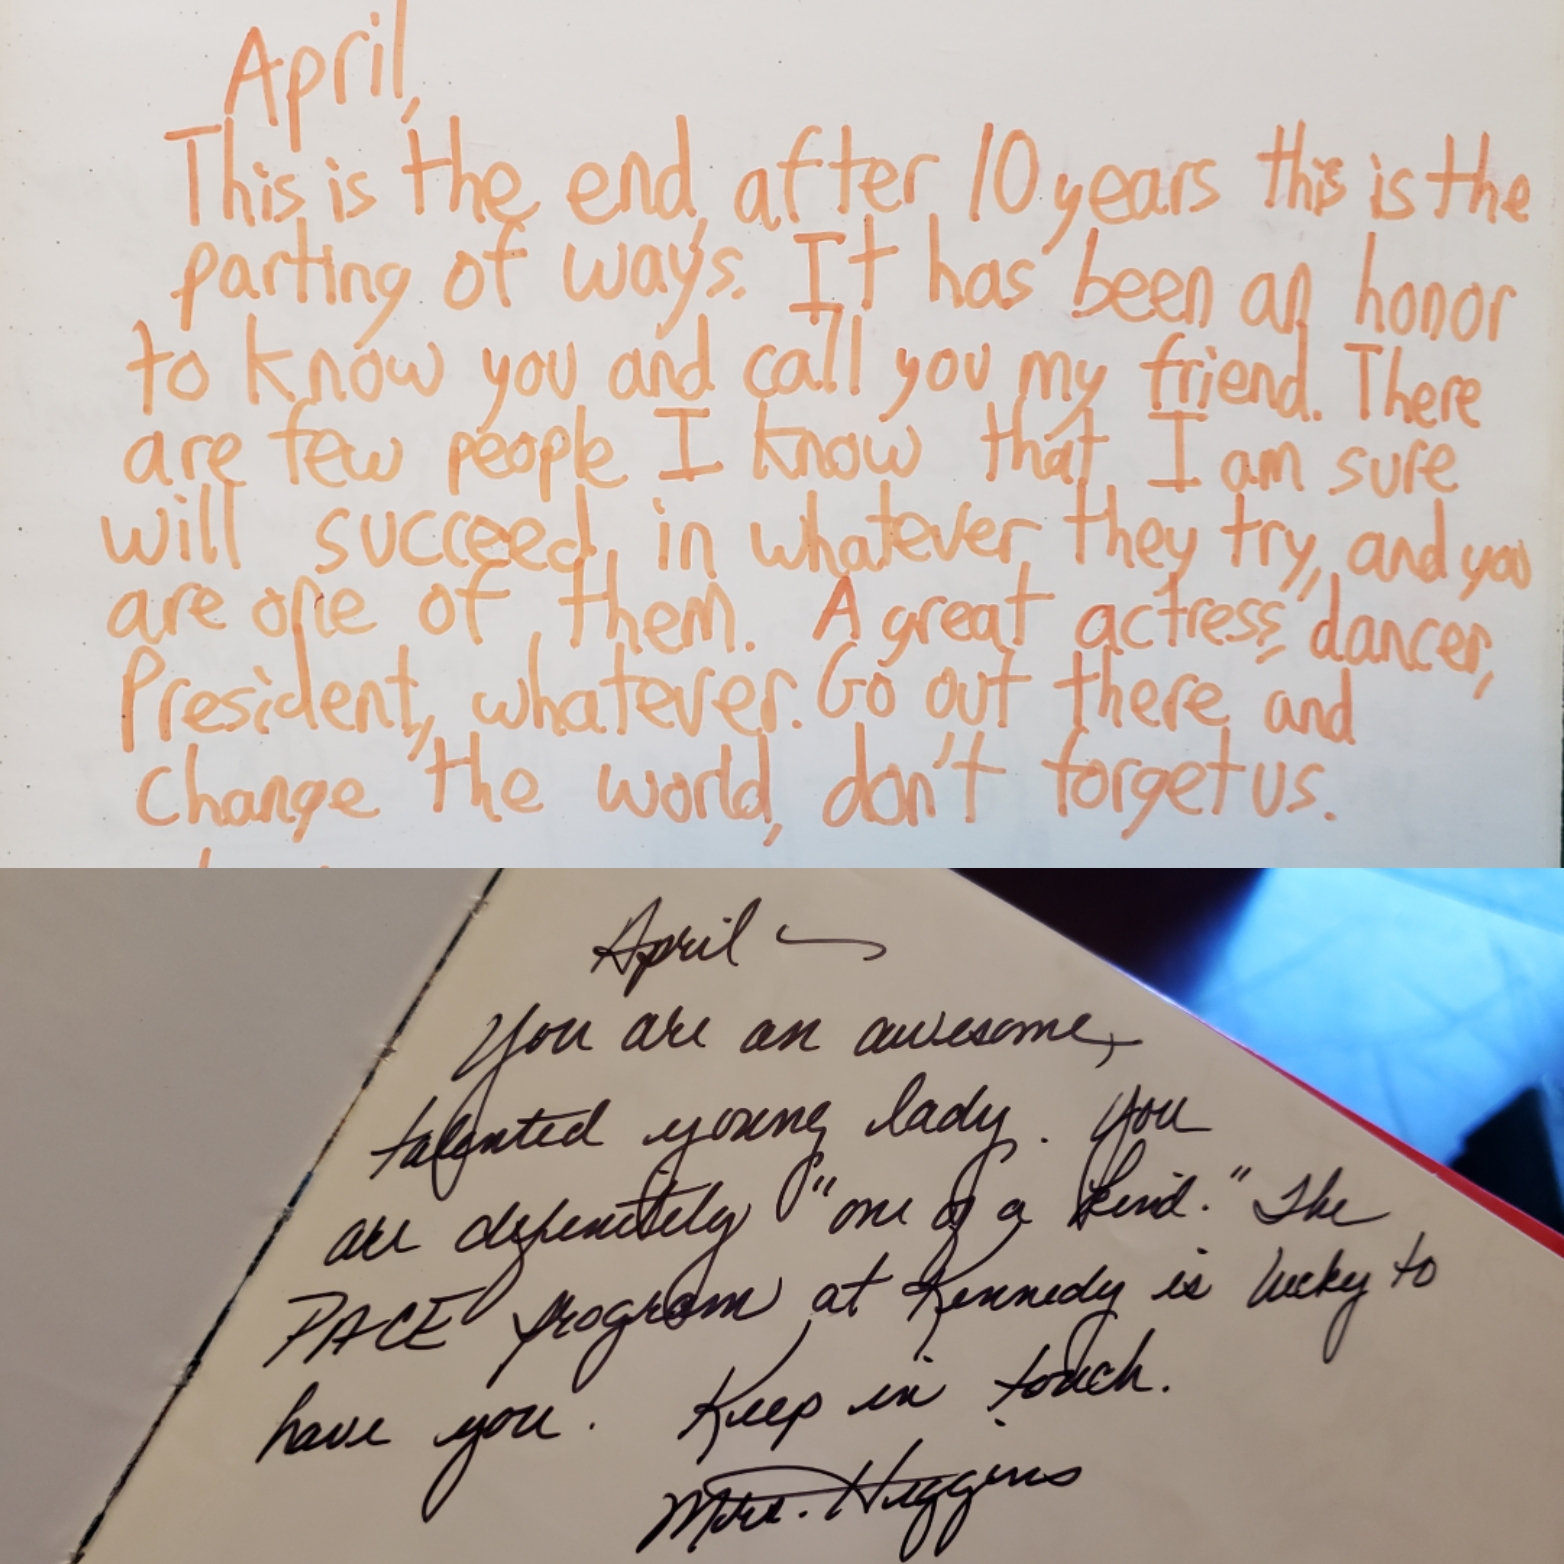 April,
This is the end, after 10 years this is the
parting of ways. It has been an honor
to know you and call you my friend. There
are few people I know that I am sure
will succeed in whatever they try, and you
are one of them. A great actress, dancer,
President, whatever. Go out there and
change the world, don't forget us.
April —
You are an awesome,
talented young lady. You
are definitely "one of a kind." The
PACE program at Kennedy is lucky to
have you. Keep in touch.
Mrs. Huggins